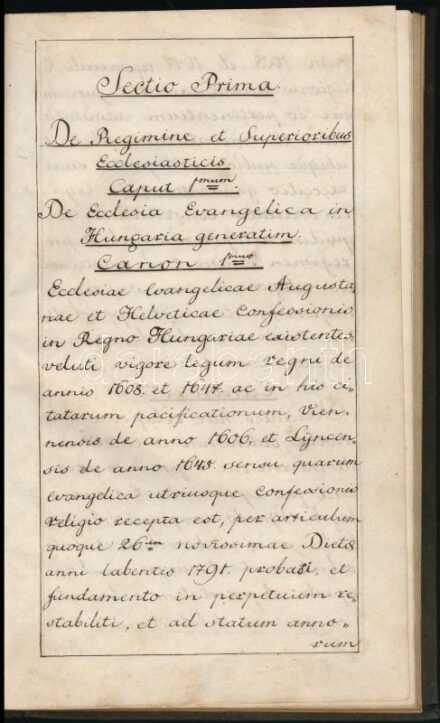 Sectio Prima
De Regimine et Superioribus
Ecclesiasticis.
Caput 1mum.
De Ecclesia Evangelica in
Hungaria generatim.
Canon 1mus.
Ecclesiae Evangelicae Augusta„
nae et Helveticae Confessionis
in Regno Hungariae existentes,
veluti vigore legum regni de
annis 1608. et 1647. ac in his ci„
tatarum pacificationum, Vien„
nensis de anno 1606, et Lyncen„
sis de anno 1645. sensu quarum
evangelica utriusque Confessionis
religio recepta est, per articulum
quoque 26um novissimae Diétae
anni labentis 1791. probati, et
fundamento in perpetuum re„
stabiliti, et ad statum anno„
rum